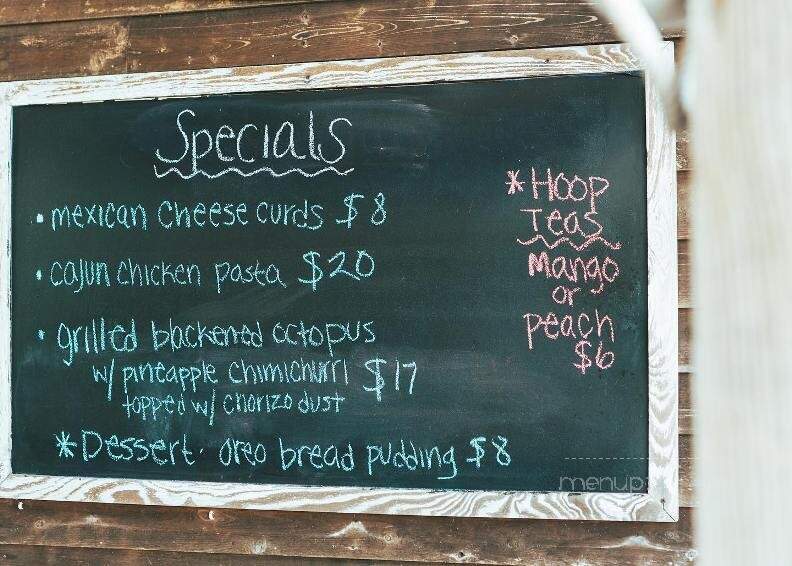 Specials
• mexican cheese curds $8
• cajun chicken pasta $20
• grilled blackened octopus
w/ pineapple chimichurri $17
topped w/ chorizo dust
*Dessert · oreo bread pudding $8
*Hoop
Teas
Mango
or
peach
$6
menup